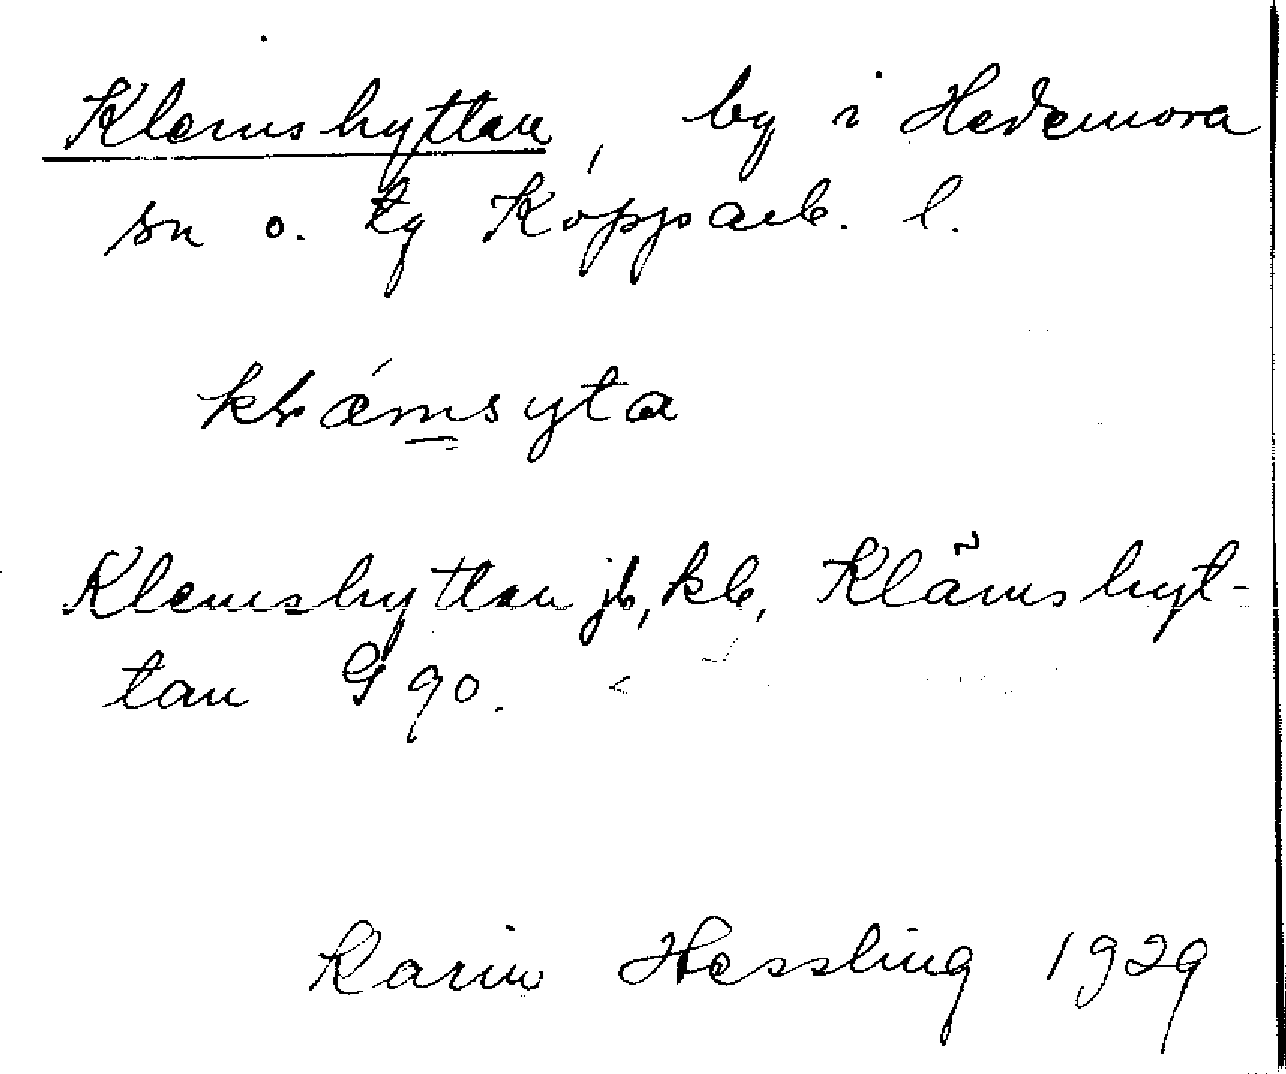 Klemshyttan, by i Hedemora
sn o. tg Kopparb. l.
klǽmsyta
Klemshyttan jb, kb, Klämshyt-
tan G 90.
Karin Hessling 1929